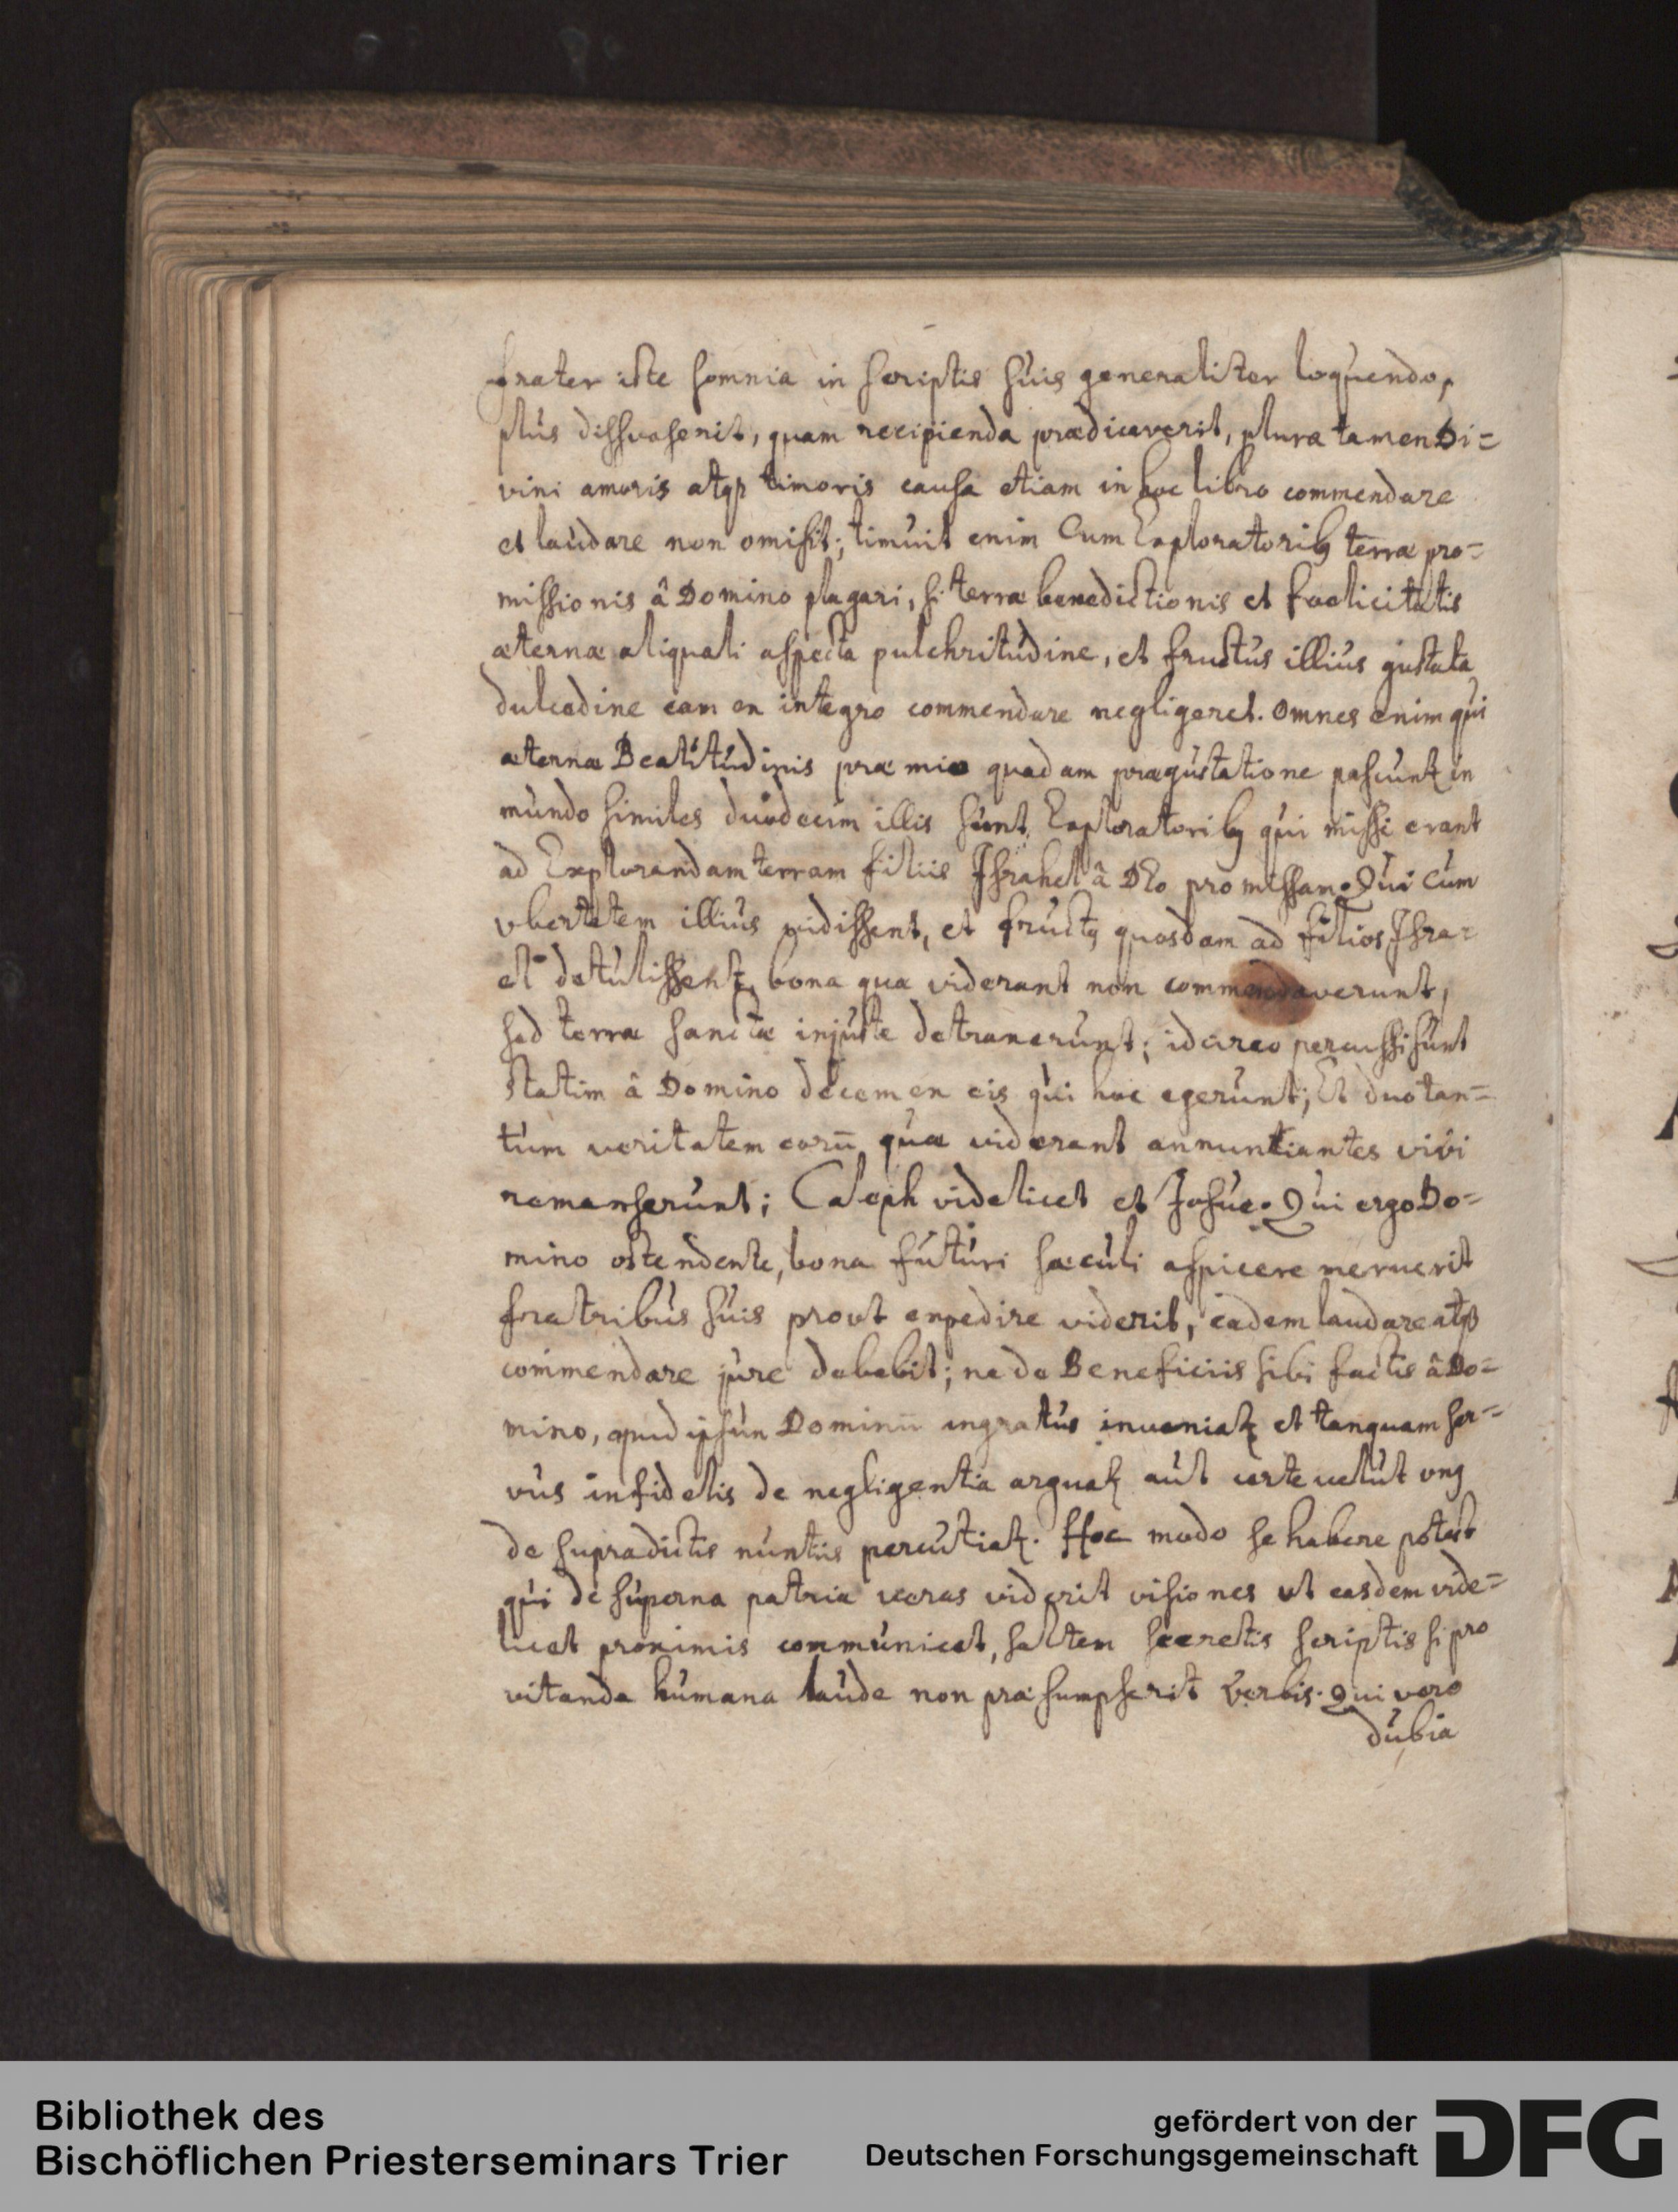 frater iste somnia in scriptis suis generaliter loquendo,
plus dissuaserit, quam recipienda prædicaverit, plura tamen Di=
vini amoris atqȝ timoris causa etiam in hoc libro commendare
et laudare non omisit; timuit enim Cum Exploratoribꝰ terræ pro=
missionis â Domino plagari, si terræ benedictionis et fœlicitatis
æternæ aliquali aspecta pulchritudine, et fructus illius gustata
dulcedine eam ex integro commendare negligeret. Omnes enim qui
æternæ Beatitudinis præmio quadam prægustatione pascuntʳ in
mundo similes duodecim illis sunt Exploratoribꝰ qui missi erant
ad Explorandam terram filiis Israhel â DEo promissam. Qui Cum
vbertatem illius vidissent, et fructꝰ quosdam ad filios Isra=
el detulissent, bona quæ viderant non commendaverunt,
sed terræ sanctæ injuste detraxerunt; idcirco percussi sunt
statim â Domino decem ex eis qui hoc egerunt; Et duo tan=
tum veritatem eorū quæ viderant annuntiantes vivi
remanserunt; Caleph videlicet et Josue. Qui ergo Do=
mino ostendente, bona futuri sæculi aspicere meruerit
fratribus suis prout expedire viderit, eadem laudare atqȝ
commendare jure debebit; ne de Beneficiis sibi factis â Do=
mino, apud ipsum Dominū ingratus inveniatʳ et tanquam ser=
vus infidelis de negligentia arguatʳ aut certe velut vnꝰ
de supradictis nuntiis percutiatʳ. Hoc modo se habere potest
qui de superna patria veras viderit visiones ut easdem vide=
licet proximis communicet, saltem secretis scriptis si pro
vitanda humana laude non præsumpserit Verbis. Qui vero
dubia
Bibliothek des
Bischöflichen Priesterseminars Trier
gefördert von der
Deutschen Forschungsgemeinschaft
DFG